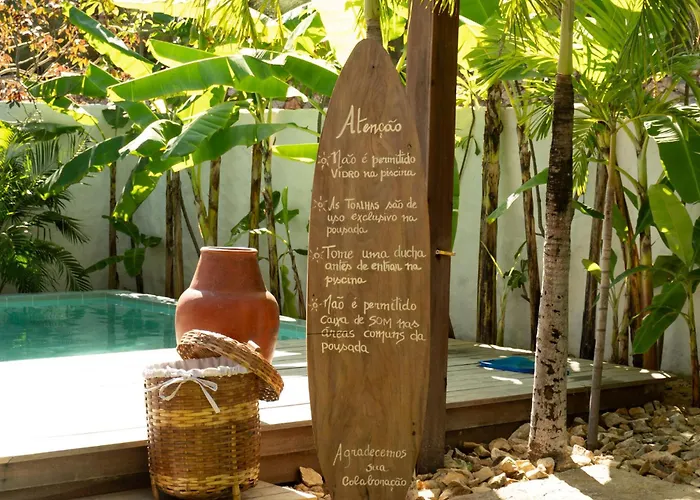 Atenção
Não é permitido
VIDRO na piscina
As TOALHAS são de
uso exclusivo na
pousada
Tome uma ducha
antes de entrar na
piscina
Não é permitido
caixa de SOM nas
áreas comuns da
pousada
Agradecemos
sua
Colaboração